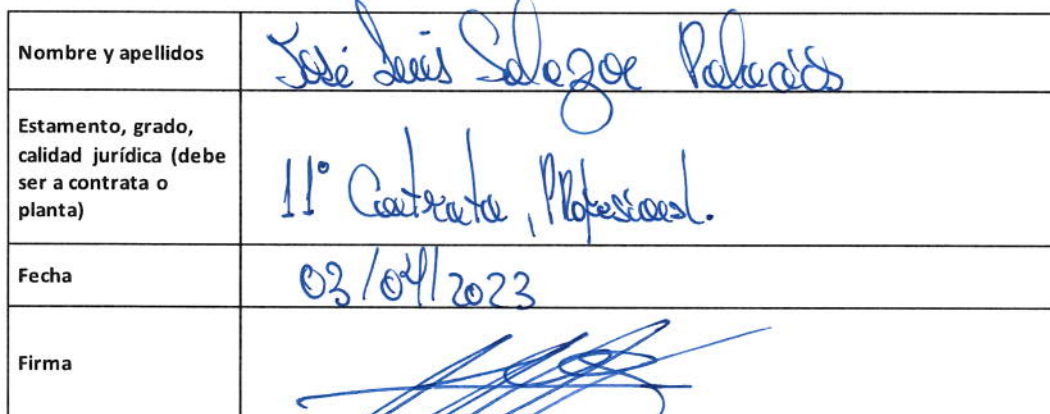 Nombre y apellidos
José Luis Salazar Palacios
Estamento, grado,
calidad jurídica (debe
ser a contrata o
planta)
11° Contrata, Profesional.
Fecha
03/04/2023
Firma